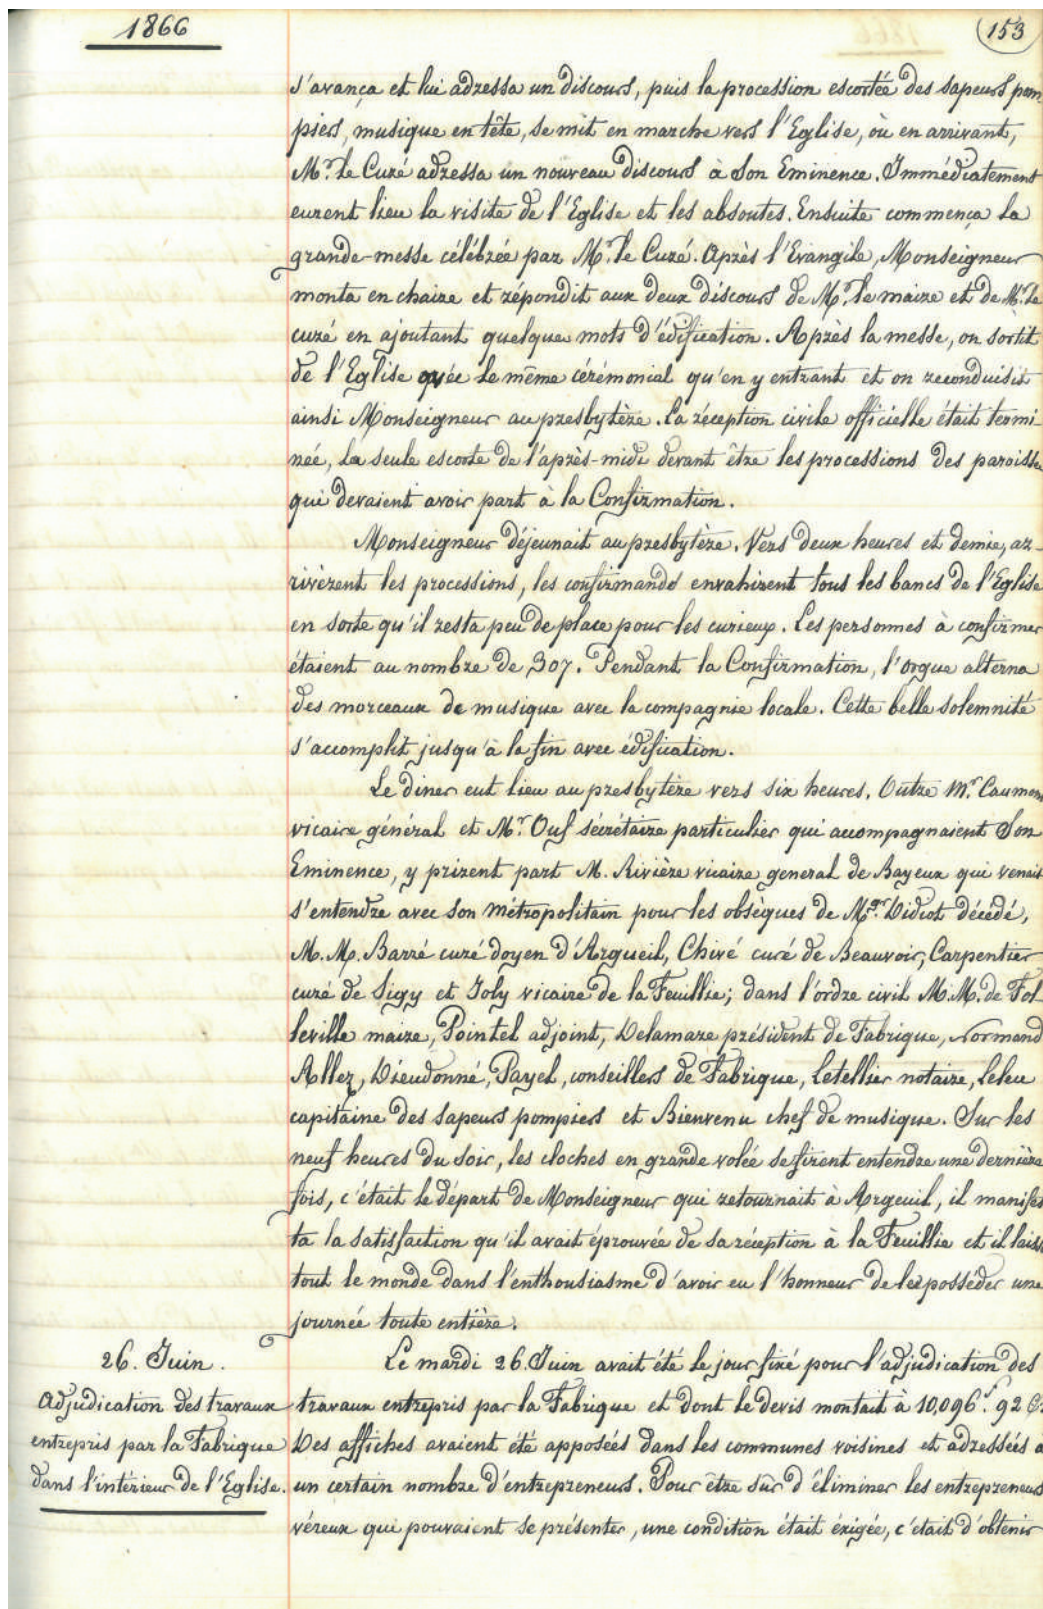 1866
153
s'avança et lui adressa un discours, puis la procession escortée des sapeurs pom
piers, musique en tête, se mit en marche vers l'Eglise, où en arrivant,
Mr. le Curé adressa un nouveau discours à Son Eminence. Immédiatement
eurent lieu la visite de l'Eglise et les absoutes. Ensuite commença la
grande-messe célébrée par Mr. le Curé. Après l'Evangile, Monseigneur
monta en chaire et répondit aux deux discours de Mr. le maire et de Mr. le
curé en ajoutant quelque mots d'édification. Après la messe, on sortit
de l'Eglise avec le même cérémonial qu'en y entrant et on reconduisit
ainsi Monseigneur au presbytère. La réception civile officielle était termi-
née, la seule escorte de l'après-midi devant être les processions des paroisse
qui devaient avoir part à la Confirmation.
Monseigneur déjeunait au presbytère. Vers deux heures et demie, ar-
rivèrent les processions, les confirmands envahirent tous les bancs de l'Eglise
en sorte qu'il resta peu de place pour les curieux. Les personnes à confirmer
étaient au nombre de 307. Pendant la Confirmation, l'orgue alterna
des morceaux de musique avec la compagnie locale. Cette belle solemnité
s'accomplit jusqu'à la fin avec édification.
Le diner eut lieu au presbytère vers six heures. Outre Mr. Caumon
vicaire général et Mr. Ouf sécrétaire particulier qui accompagnaient Son
Eminence, y prirent part M. Rivière vicaire general de Bayeux qui venait
s'entendre avec son métropolitain pour les obsèques de Mgr. Didiot décédé,
M.M. Barré curé doyen d'Argueil, Chivé curé de Beauvoir, Carpentier
curé de Sigy et Joly vicaire de la Feuillie; dans l'ordre civil M.M. de Fol
leville maire, Pointel adjoint, Delamare président de Fabrique, Normand
Allez, Dieudonné, Payel, conseillers de Fabrique, Letellier notaire, Leleu
capitaine des sapeurs pompiers et Bienvenu chef de musique. Sur les
neuf heures du soir, les cloches en grande volée se firent entendre une dernière
fois, c'était le départ de Monseigneur qui retournait à Argeuil, il manifes
ta la satisfaction qu'il avait éprouvée de sa réception à la Feuillie et il laiss
tout le monde dans l'enthousiasme d'avoir eu l'honneur de le posséder une
journée toute entière.
26. Juin.
Adjudication des travaux
entrepris par la Fabrique
dans l'intérieur de l'Eglise.
Le mardi 26 Juin avait été le jour fixé pour l'adjudication des
travaux entrepris par la Fabrique et dont le devis montait à 10,096f. 92 c.
Des affiches avaient été apposées dans les communes voisines et adressées à
un certain nombre d'entrepreneurs. Pour être sûr d'éliminer les entrepreneurs
véreux qui pouvaient se présenter, une condition était éxigée, c'était d'obtenir